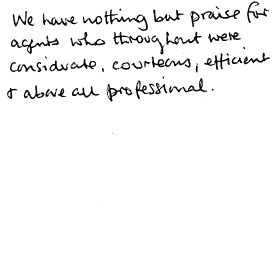 We have nothing but praise for
agents who throughout were
considerate, courteous, efficient
& above all professional.